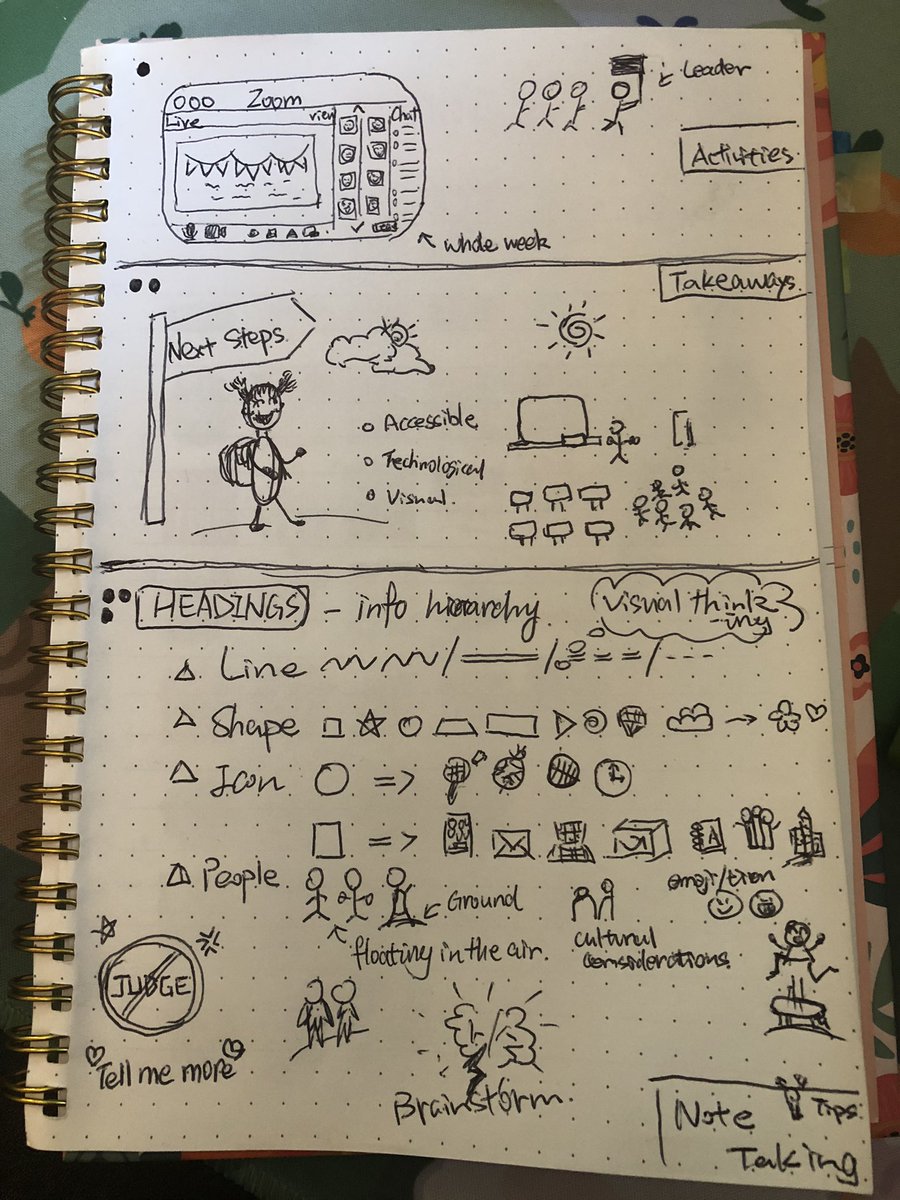 Zoom
Live
view
Chat
Leader
Activities
whole week
Takeaways
Next Steps
Accessible
Technological
Visual
HEADINGS - info hierarchy
Visual think
-ing
Line
Shape
Icon
People
Ground
floating in the air.
cultural
considerations
emoji/tion
JUDGE
Tell me more
Brainstorm
Note Tips
Taking